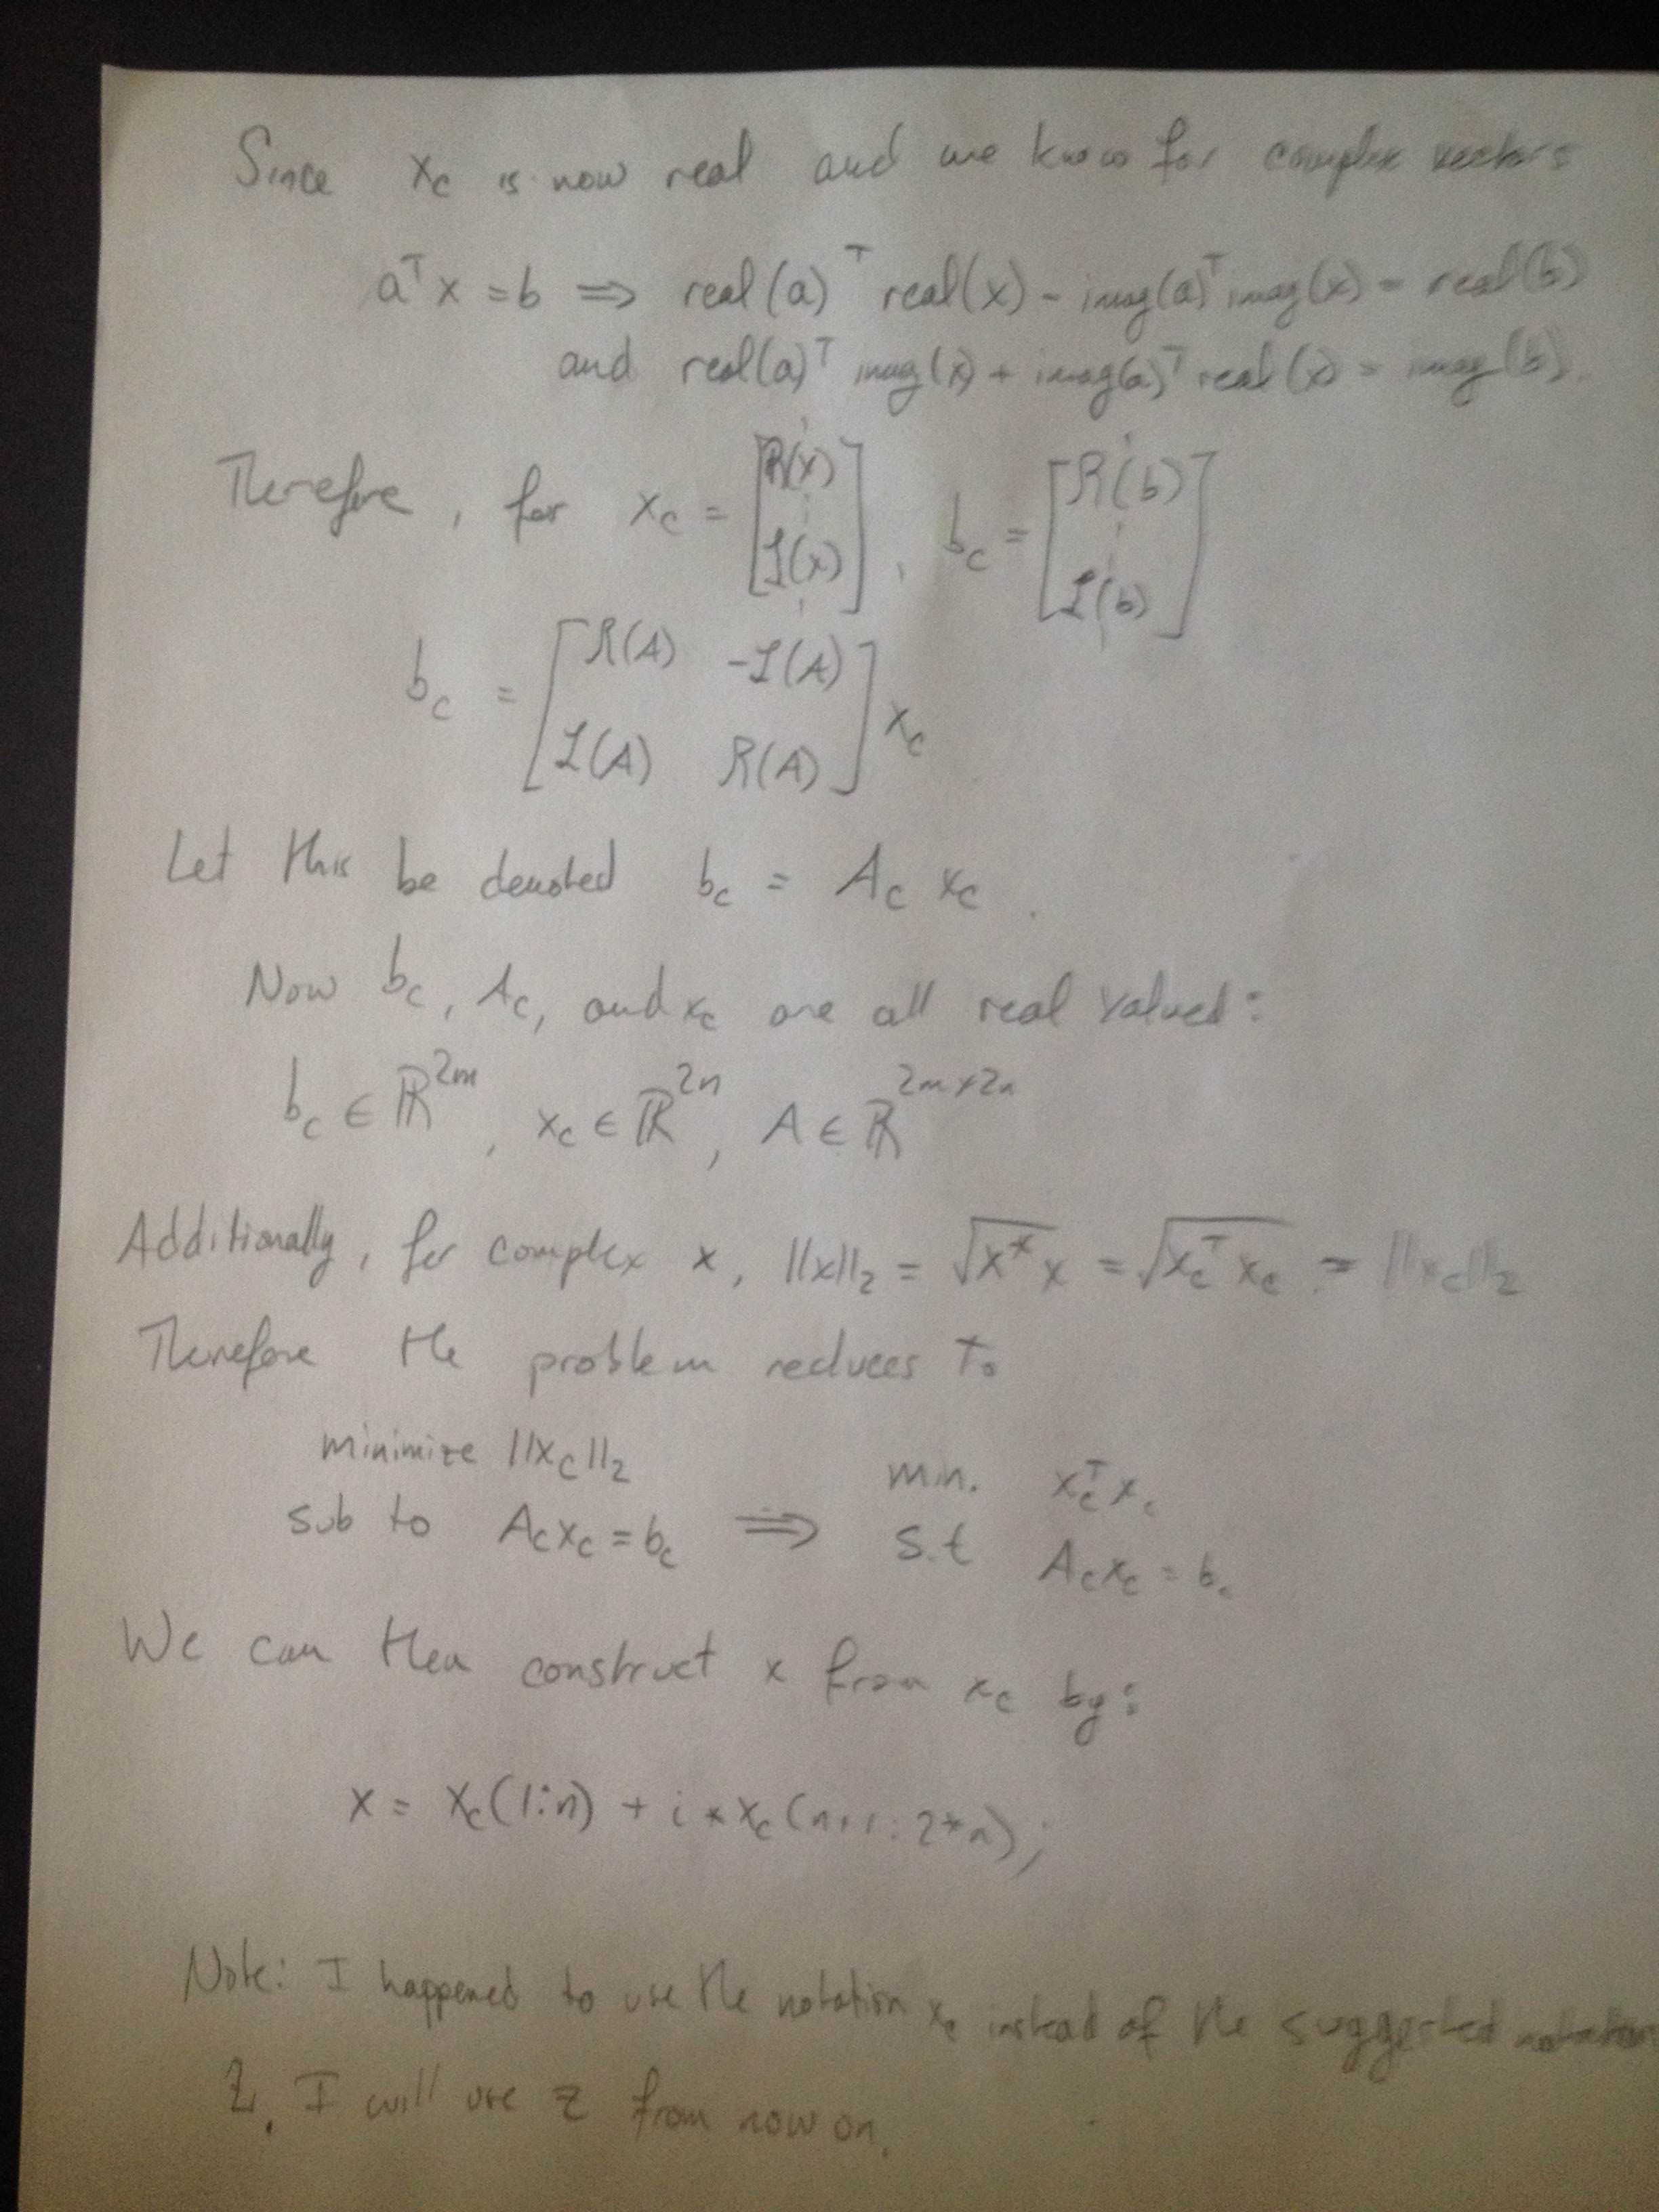 Since x_c is now real and we know for complex vectors
a^T x = b ⇒ real(a)^T real(x) - imag(a)^T imag(x) = real(b)
and real(a)^T imag(x) + imag(a)^T real(x) = imag(b).
Therefore, for x_c = [R(x) ⋮ I(x) ⋮], b_c = [R(b) ⋮ I(b) ⋮]
b_c = [R(A) -I(A)
I(A) R(A)] x_c
Let this be denoted b_c = A_c x_c.
Now b_c, A_c, and x_c are all real valued:
b_c ∈ ℝ^{2m}, x_c ∈ ℝ^{2n}, A ∈ ℝ^{2m×2n}
Additionally, for complex x, ||x||_2 = √(x^* x) = √(x_c^T x_c) = ||x_c||_2
Therefore the problem reduces to
minimize ||x_c||_2 min. x_c^T x_c
sub to A_c x_c = b_c ⇒ s.t A_c x_c = b_c
We can then construct x from x_c by:
x = x_c(1:n) + i*x_c(n+1:2*n);
Note: I happened to use the notation x_c instead of the suggested notation
z. I will use z from now on.